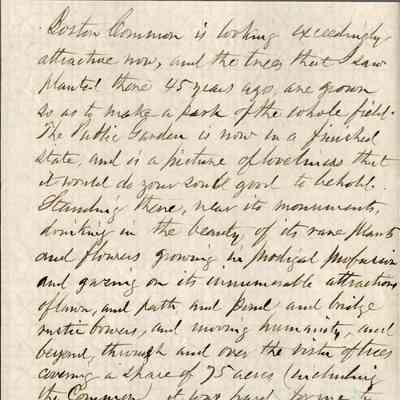 Boston Common is looking exceedingly
attractive now, and the trees that I saw
planted there 45 years ago, are grown
so as to make a park of the whole field.
The Public Garden is now in a finished
state, and is a picture of loveliness that
it would do your soul good to behold.
Standing there, near its monuments,
drinking in the beauty of its rare plants
and flowers growing in prodigal profusion
and gazing on its innumerable attractions
of lawn, and path, and pond, and bridge
rustic bowers, and moving humanity, and
beyond, through and over the vista of trees
covering a space of 75 acres (including
the Common), it was hard for me to